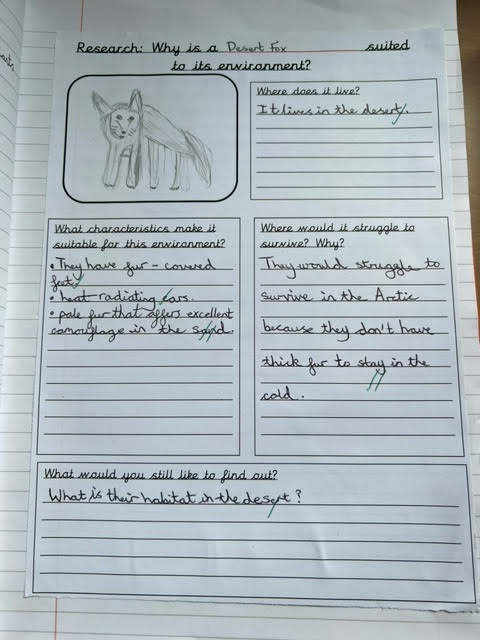 Research: Why is a Desert Fox suited
to its environment?
Where does it live?
It lives in the desert.
What characteristics make it
suitable for this environment?
• They have fur - covered
feet
• heat-radiating ears.
• pale fur that offers excellent
camouflage in the sand.
Where would it struggle to
survive? Why?
They would struggle to
survive in the Arctic
because they don't have
thick fur to stay in the
cold.
What would you still like to find out?
What is their habitat in the desert?